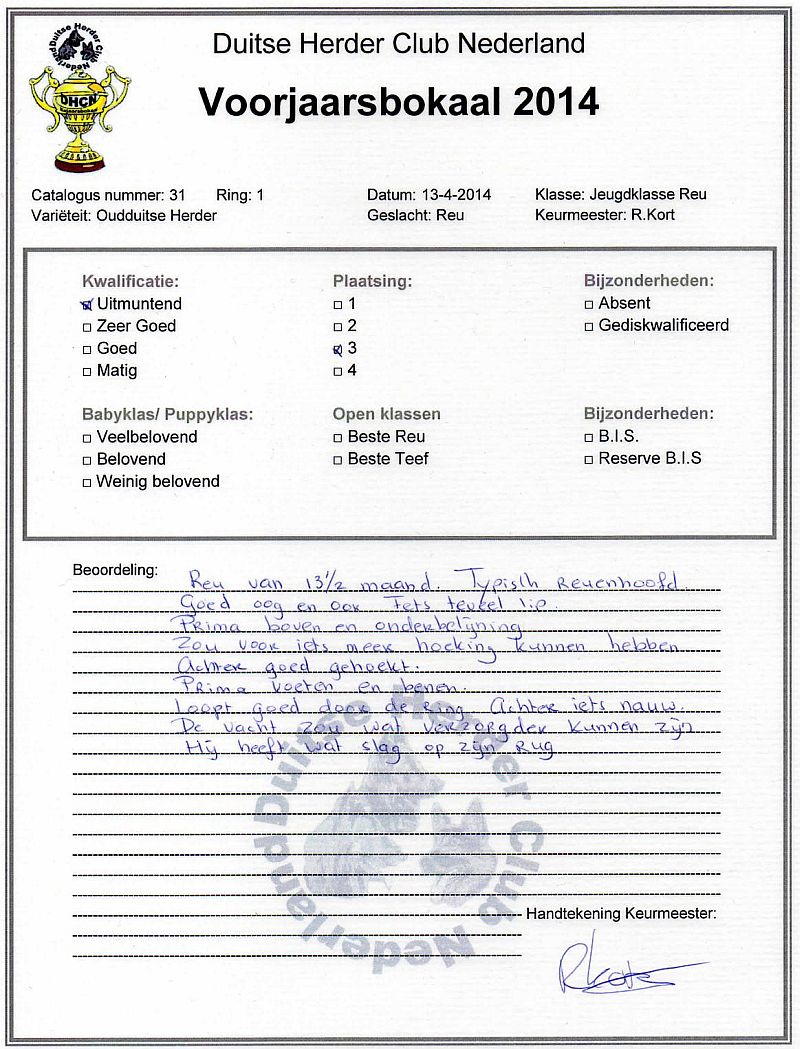 Duitse Herder Club Nederland
DHCN
Duitse Herder Club Nederland
Voorjaarsbokaal 2014
Catalogus nummer: 31 Ring: 1 Datum: 13-4-2014 Klasse: Jeugdklasse Reu
Variëteit: Oudduitse Herder Geslacht: Reu Keurmeester: R.Kort
Kwalificatie: Plaatsing: Bijzonderheden:
Uitmuntend 1 Absent
Zeer Goed 2 Gediskwalificeerd
Goed 3
Matig 4
Babyklas/ Puppyklas: Open klassen Bijzonderheden:
Veelbelovend Beste Reu B.I.S.
Belovend Beste Teef Reserve B.I.S
Weinig belovend
Beoordeling:
Reu van 13½ maand. Typisch reuenhoofd.
Goed oog en oor Iets teveel lip.
Prima boven en onderbelijning
Zou voor iets meer hoeking kunnen hebben
Achter goed gehoekt.
Prima voeten en benen.
Loopt goed door de ring Achter iets nauw.
De vacht zou wat verzorgder kunnen zijn
Hij heeft wat slag op zijn rug
Duitse Herder Club Nederland
Handtekening Keurmeester:
RKort